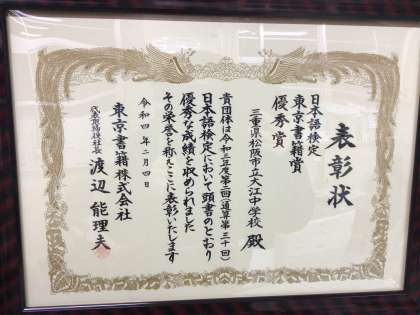 表彰状
日本語検定
東京書籍賞
優秀賞
三重県松阪市立大江中学校 殿
貴団体は令和三年度第二回(通算第三十回)
日本語検定において頭書のとおり
優秀な成績を収められました
その栄誉を称えここに表彰いたします
令和四年二月四日
東京書籍株式会社
代表取締役社長 渡辺能理夫